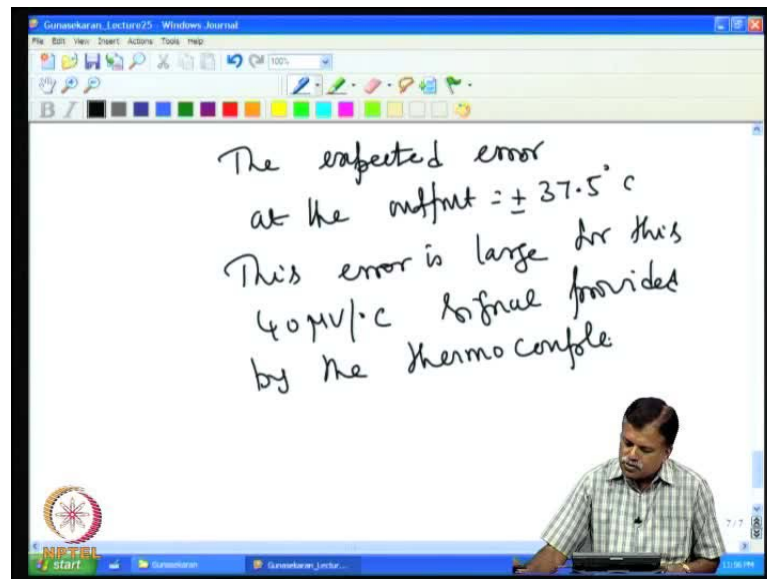 Gunasekaran_Lecture25 - Windows Journal
File Edit View Insert Actions Tools Help
100%
B I
The expected error
at the output = ± 37.5° c
This error is large for this
40 μV/°C signal provided
by the thermo couple.
7/7
NPTEL
start Gunasekaran Gunasekaran_Lectur... 11:56 PM